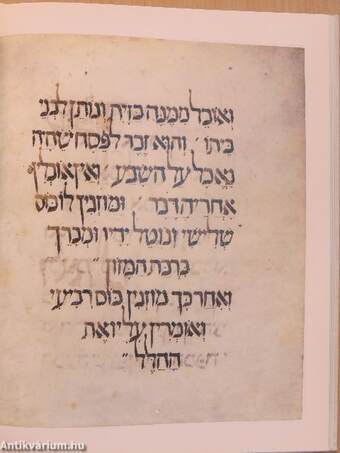 ואוכל ממנה כזית ונותן לבני
ביתו והוא זכר לפסח שהיה
נאכל על השבע ואין אוכלין
אחריה דבר ומוזגין לו כוס
שלישי ונוטל ידיו ומברך
ברכת המזון
ואחר כך מוזגין כוס רביעי
ואומרין עליו את
ההלל
Antikvarium.hu